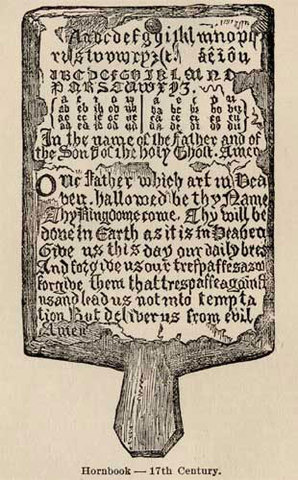 Aabcdefghijklmnopq
rsstuvwxyz&. âêîôû
ABCDEFGHIJKLMNO
PQRSTUVWXYZ.
a e i o u a e i o u
ab eb ib ob ub ba be bi bo bu
ac ec ic oc uc ca ce ci co cu
ad ed id od ud da de di do du
In the name of the Father and of
the Son & of the holy Ghost. Amen
Our Father which art in Hea
ven, hallowed be thy Name
Thy Kingdome come, Thy will be
done in Earth as it is in Heaven
Give us this day our daily bread
And forgive us our trespasses as we
forgive them that trespasse against
us and lead us not into tempta
tion But deliver us from evil
Amen
Hornbook — 17th Century.